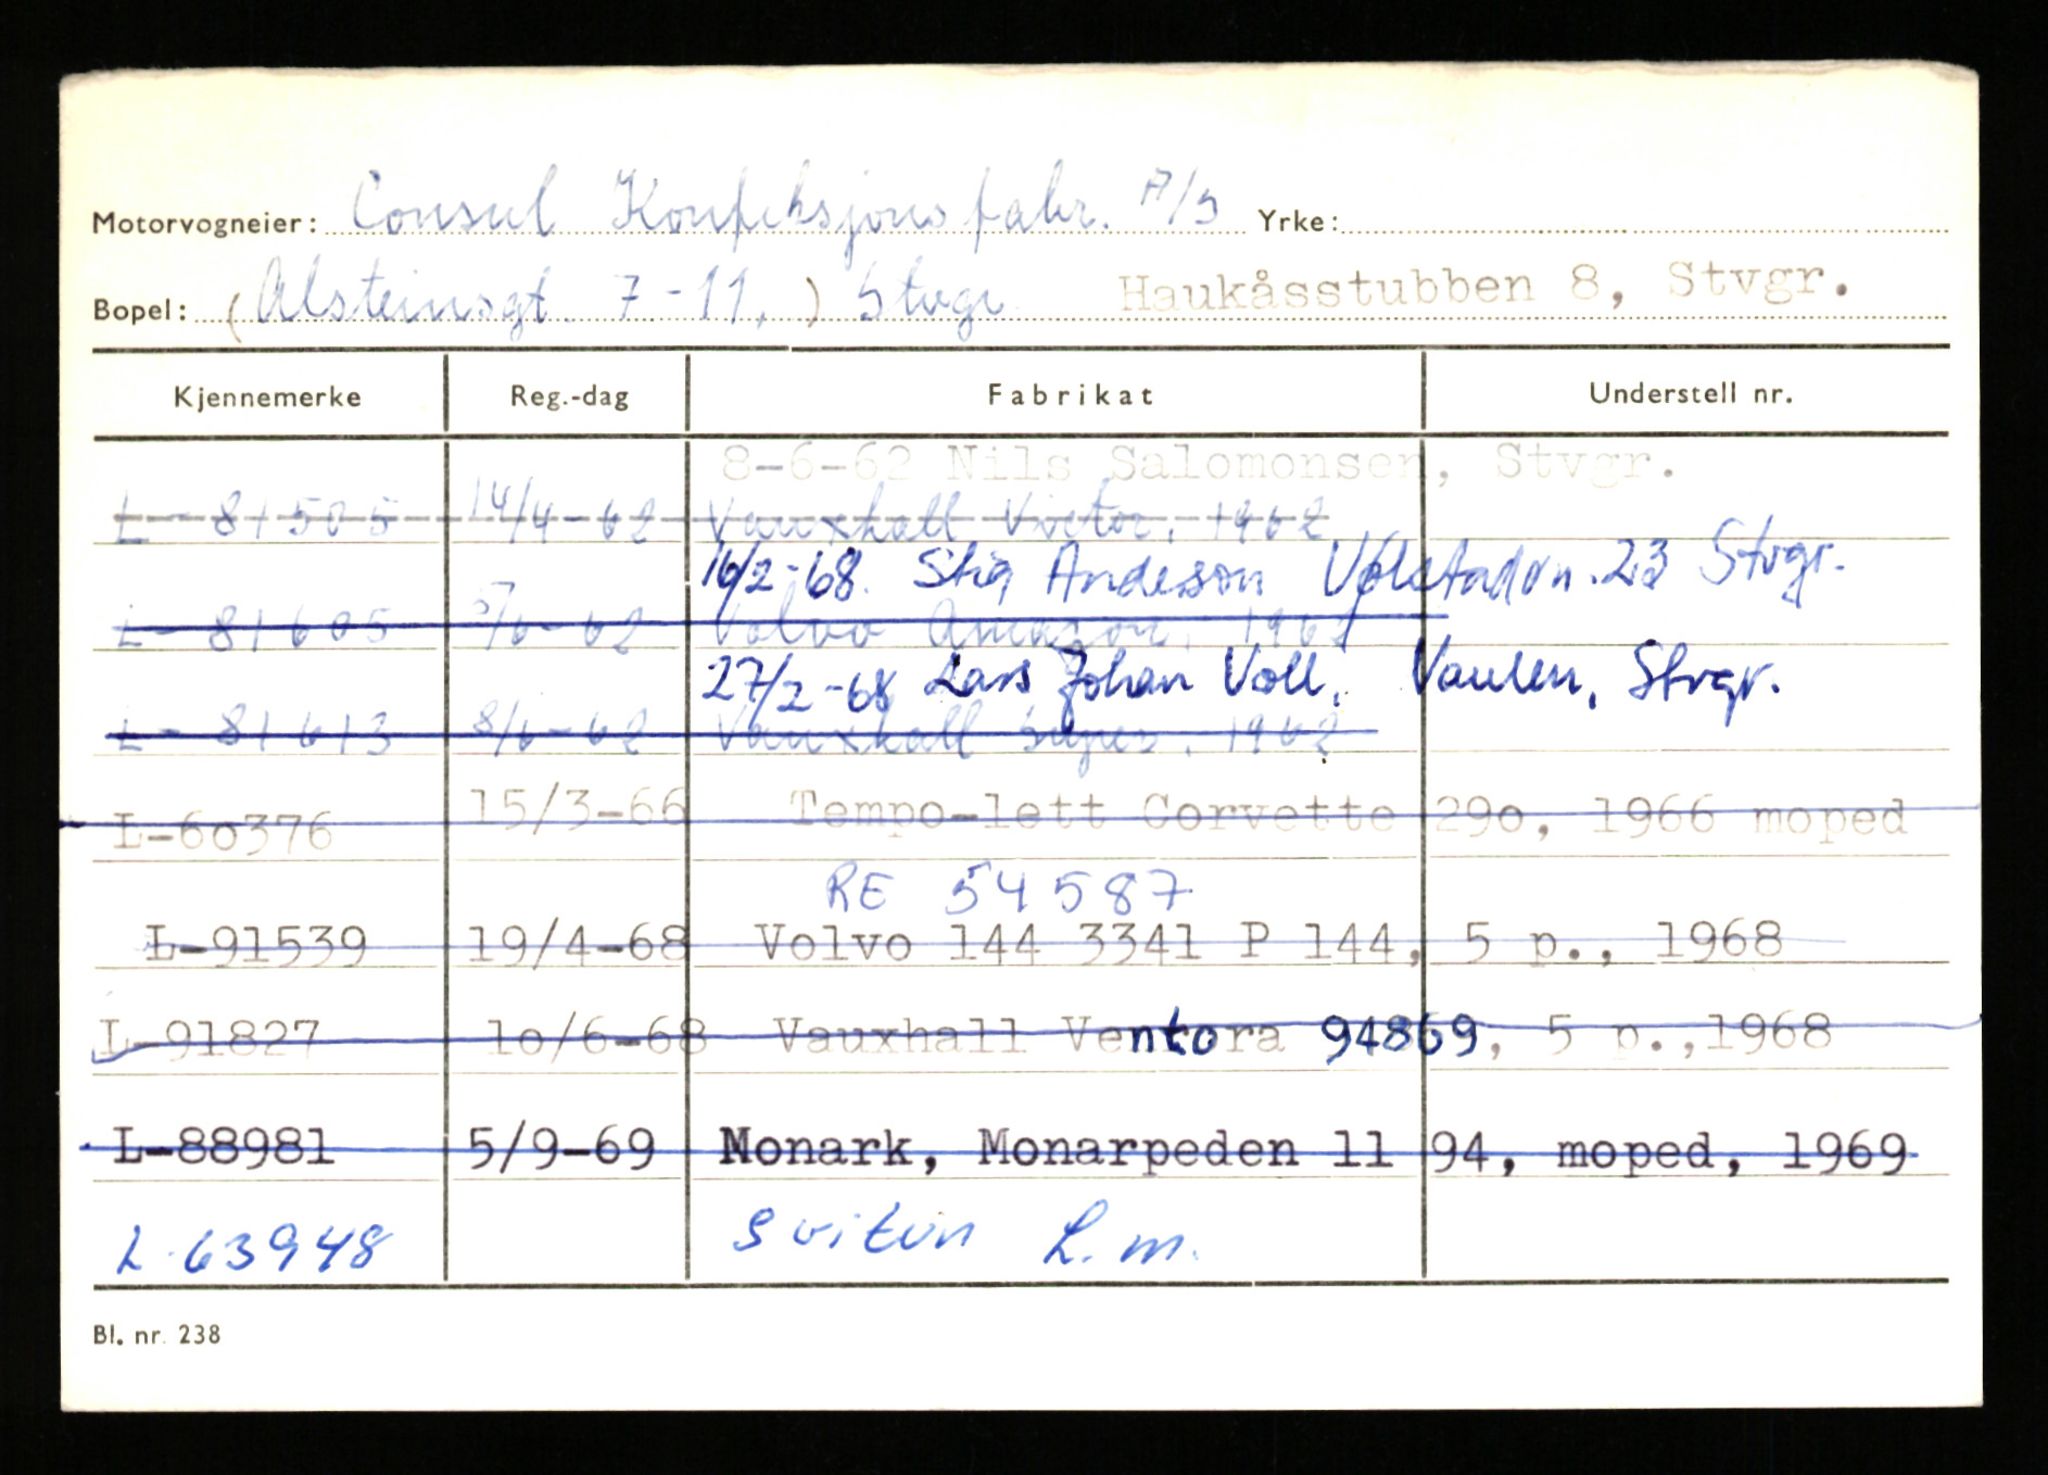 Motorvogneier: Consul Konfeksjonsfabr. A/S Yrke:
Bopel: (Alsteinsgt. 7-11.) Stvgr Haukåsstubben 8, Stvgr.
Kjennemerke Reg.-dag Fabrikat Understell nr.
8-6-62 Nils Salomonsen, Stvgr.
L-81505 14/4-62 Vauxhall Victor, 1962
16/2-68. Stig Andersson 23 Stvgr.
L-81605 5/6-62 Volvo Amazon, 1962
27/2-68 Lars Johan Voll, Vaulen, Stvgr.
L-81613 8/6-62 Vauxhall Super, 1962
L-60376 15/3-66 Tempo-lett Corvette 290, 1966 moped
RE 54587
L-91539 19/4-68 Volvo 144 3341 P 144, 5 p., 1968
L-91827 10/6-68 Vauxhall Ventora 94869, 5 p.,1968
L-88981 5/9-69 Monark, Monarpeden 11 94, moped, 1969
L-63948 Svitun L.m.
Bl. nr. 238